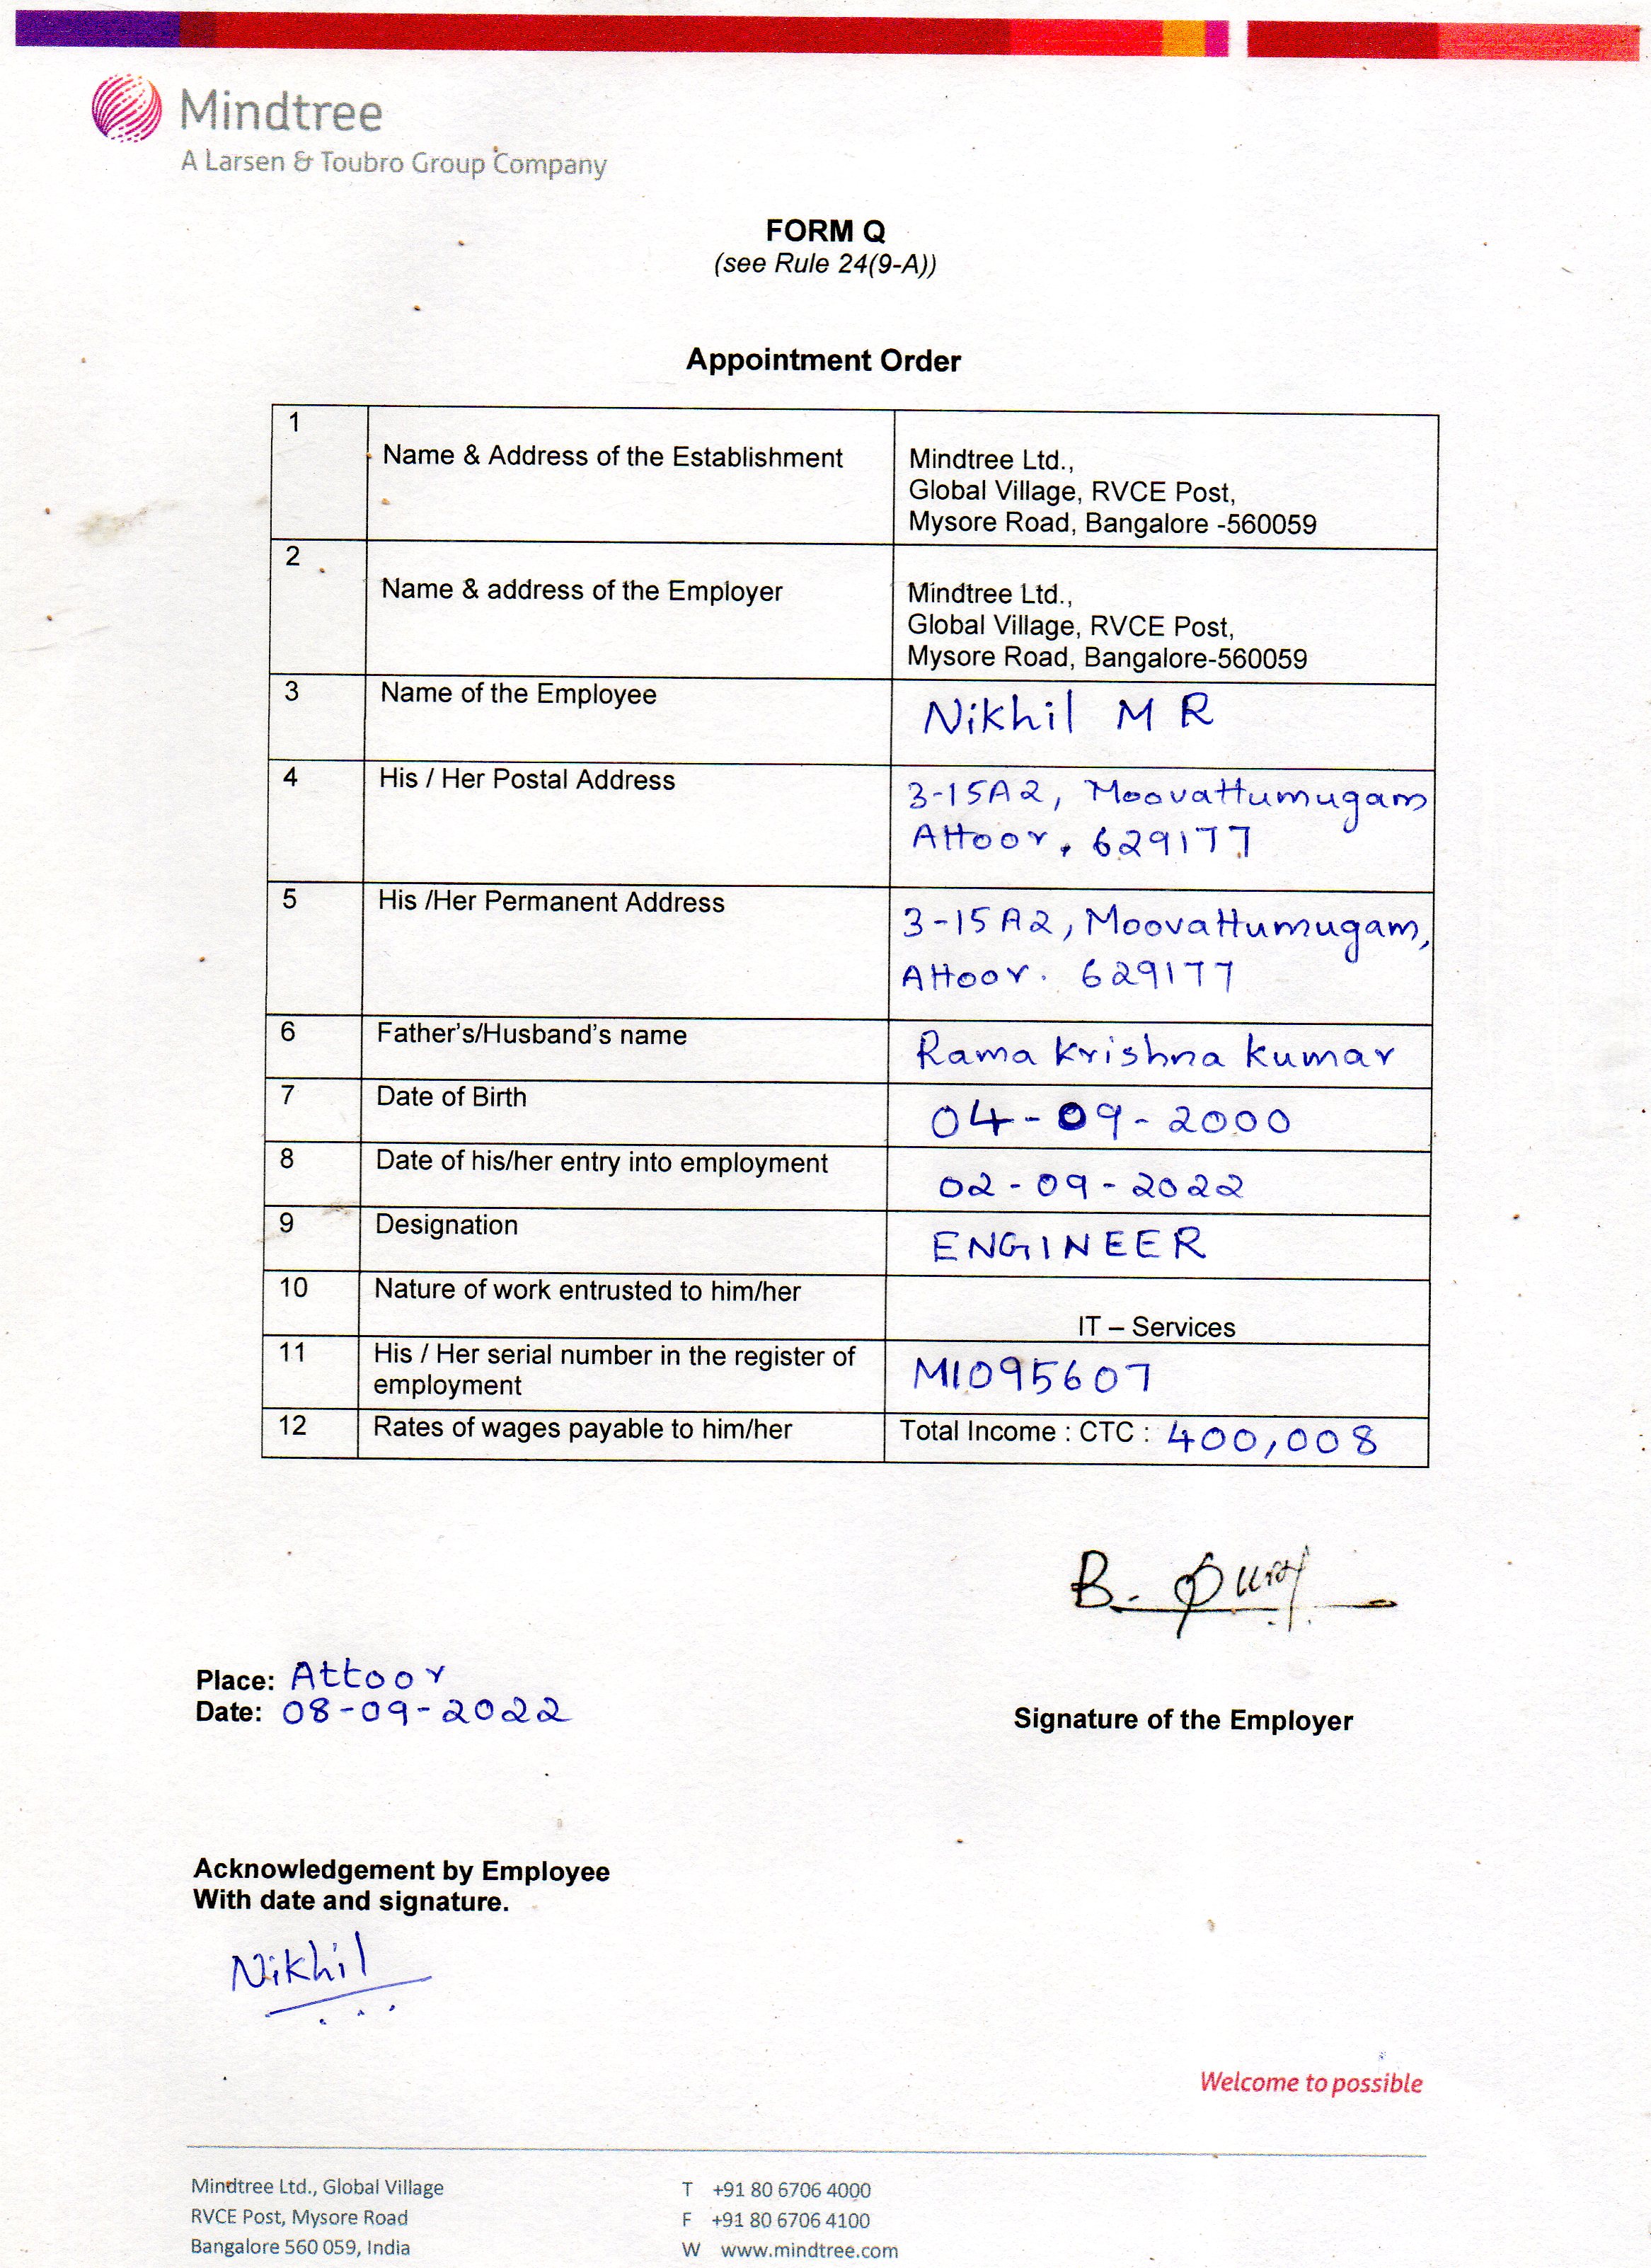 Mindtree
A Larsen & Toubro Group Company
FORM Q
(see Rule 24(9-A))
Appointment Order
1
Name & Address of the Establishment
Mindtree Ltd.,
Global Village, RVCE Post,
Mysore Road, Bangalore -560059
2
Name & address of the Employer
Mindtree Ltd.,
Global Village, RVCE Post,
Mysore Road, Bangalore-560059
3 Name of the Employee Nikhil M R
4 His / Her Postal Address 3-15A2, Moovattumugam
Attoor, 629177
5 His /Her Permanent Address 3-15A2, Moovattumugam,
Attoor. 629177
6 Father's/Husband's name Rama Krishna Kumar
7 Date of Birth 04-09-2000
8 Date of his/her entry into employment 02-09-2022
9 Designation ENGINEER
10 Nature of work entrusted to him/her IT – Services
11 His / Her serial number in the register of
employment
M1095607
12 Rates of wages payable to him/her Total Income : CTC : 400,008
B.
Place: Attoor
Date: 08-09-2022
Signature of the Employer
Acknowledgement by Employee
With date and signature.
Nikhil
Welcome to possible
Mindtree Ltd., Global Village
RVCE Post, Mysore Road
Bangalore 560 059, India
T +91 80 6706 4000
F +91 80 6706 4100
W www.mindtree.com